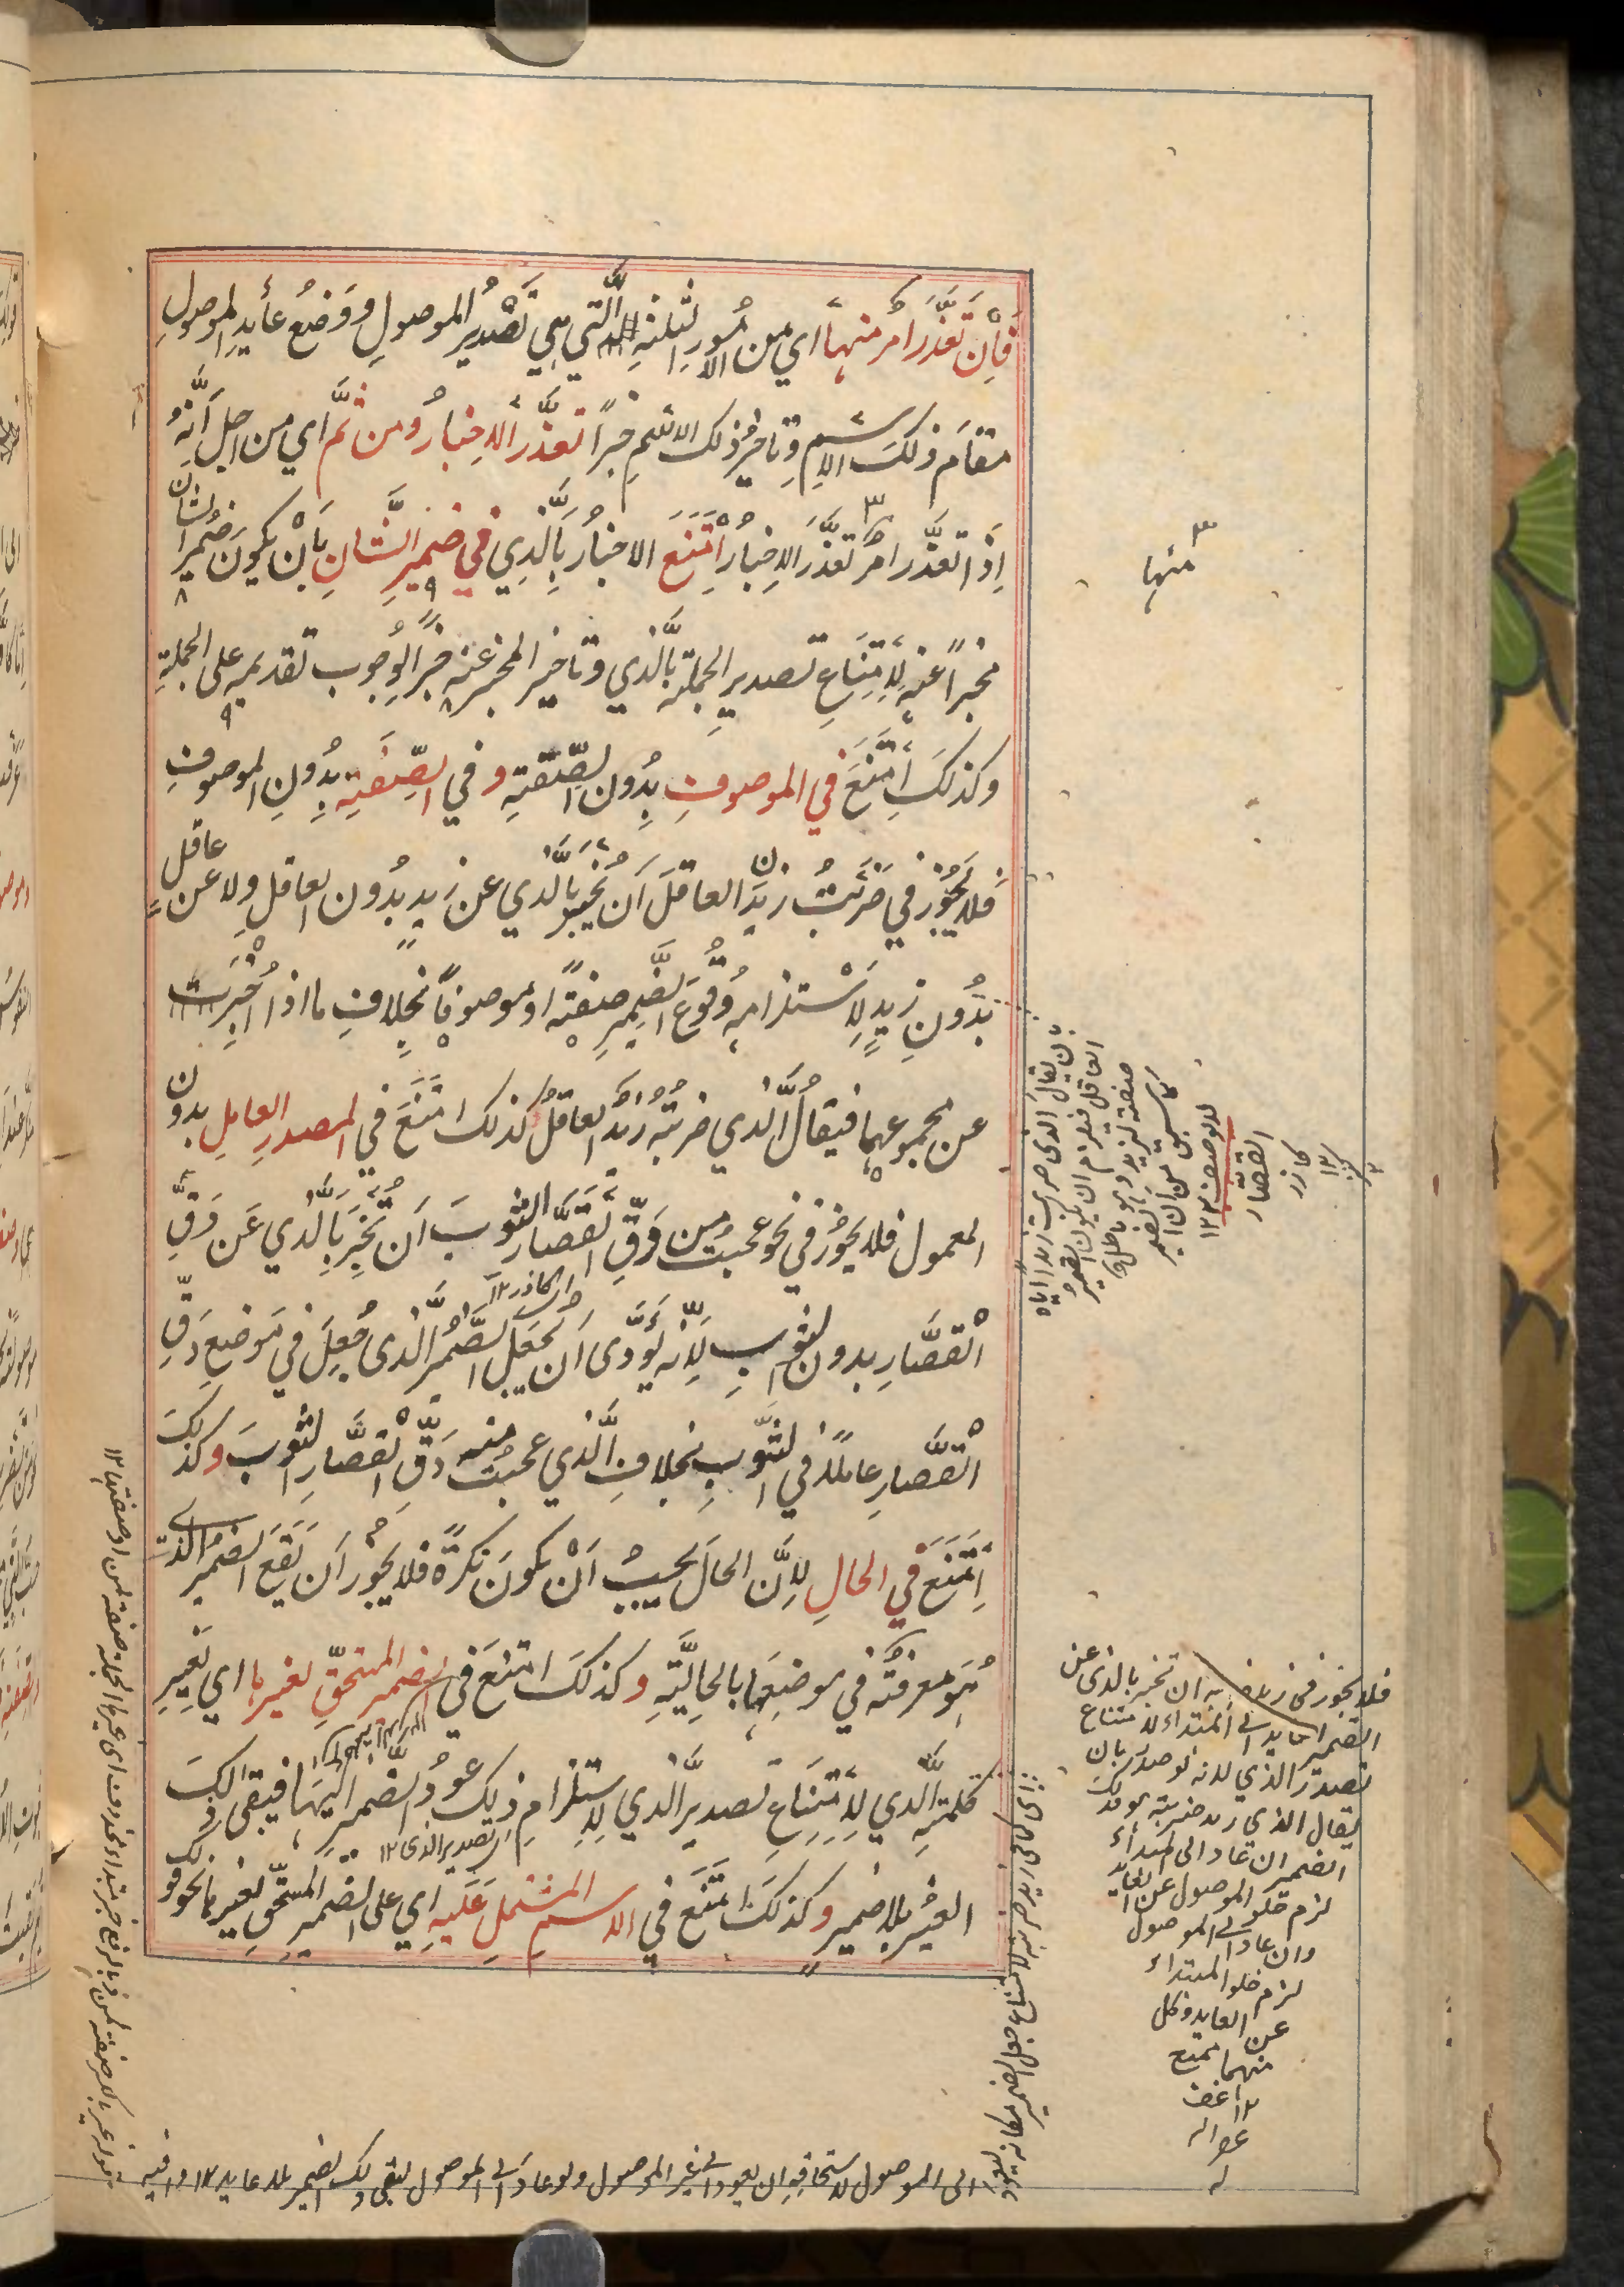 فَإِنْ تَعَذَّرَ امرٌ منها اي من الأُمُورِ الثلثةِ الَّتي هِي تَصْدِيرُ الموصولِ وَوَضعُ عائِدِ الموصولِ
مقامَ ذلكَ الاسمِ وتاخيرُ ذلك الاسمِ خبراً تعذَّرَ الاِخبارُ ومن ثمَّ اي من اجلِ اَنَّهُ
اِذا تعَذَّرَ امرٌ تعَذَّرَ الاِخبارُ اِمْتَنَعَ الاخبارُ بِالَّذِي في ضميرِ الشَّانِ بِاَنْ يكونَ ضميرُ الشان
مخبراً عنه لِامْتِنَاعِ تصديرِ الجملةِ بالَّذي وتاخيرِ المخبرِ عنه خبراً لِوُجوبِ تقديمِهِ على الجملةِ
وكذلكَ اِمْتَنَعَ في الموصوفِ بِدُونِ الصِّفةِ وفي الصِّفةِ بِدُونِ الموصوفِ
فلا يَجُوزُ في ضَرَبْتُ زيدَنِ العاقلَ اَن يُخْبَرَ بِالَّذي عن زيدٍ بِدُونِ العاقلِ ولا عن عاقل
بِدُونِ زيدٍ لِاسْتلزامِهِ وُقُوعَ الضَّميرِ صفةً او موصوفاً بخلافِ ما اذا اُخْبِرَت
عن مجموعِهِما فيقالُ الَّذي ضربتُهُ زيدٌ العاقلُ كذلك امْتَنَعَ في المصدرِ العاملِ بدون
المعمول فلا يجوزُ في نحو عجبتُ من دَقِّ القَصَّارِ الثوبَ اَن تُخْبِرَ بِالَّذي عَن دَقِّ
الْقصَّارِ بدونِ الثوبِ لِاَنَّه يُؤدّى اَن يُجْعَلَ الضَّميرُ الَّذى جُعِلَ في مَوضِعِ دَقِّ
الْقصَّارِ عاملًا في الثَّوبِ بخلافِ الَّذي عجبتُ منه دَقُّ الْقصَّارِ الثوبَ وكذلك
اِمْتَنَعَ في الحالِ لِاَنَّ الحالَ يجبُ اَنْ يكونَ نكرةً فلا يجوزُ اَن يَقَعَ الضميرُ الذى
هُوَ معرفتُه في موضعِها بالحاليَّةِ وكذلكَ امتنعَ في الضميرِ المستحقِّ لغيرِها اي لِغَيرِ
كلمةِ الَّذي لِامْتِنَاعِ تصديرِ الَّذي لِاستلزامِ ذلِك عودُ الضّميرِ اليها فيبقى ذلكَ
الغيرُ بلا ضميرٍ وكذلكَ امْتَنَعَ في الاسمِ المشتملِ عَلَيهِ اي على الضميرِ المستحقِّ لغيرها نحو قولك
اى تصدير الذى ١٢
منها
بان يقال الذى ضربت زيدا اياه
العاقل فيلزم ان يكون الضمير
صفة لزيد وهو باطل
كما سبق من ان الضمير
لا يوصف ١٢
القصّار
كازر
١٢
فلا يجوز فى زيد ضربته ان تخبر بالذى عن
الضمير العايد الى المبتداء لامتناع
تصدر الذي لانه لو صدر بان
يقال الذى زيد ضربته هو فذلك
الضمير ان عاد الى المبتداء
لزم خلو الموصول عن العايد
وان عاد الى الموصول
لزم خلو المبتداء
عن العايد وكل
منهما ممتنع
١٢
الى الموصول لاستحاقه ان يعود الى غير الموصول ولو عاد الى الموصول لبقى ذلك الضمير بلا عايد ١٢